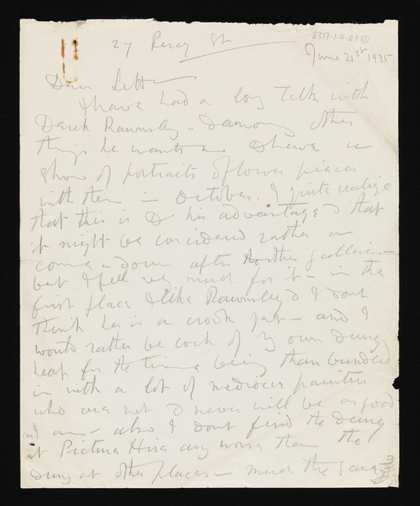 27 Percy St
June 21st 1935
Dear Lett
I have had a long talk with
Derek Rawnsley - & among other
things he wants me to have a
show of portraits & flower pieces
with them in October. I quite realize
that this is to his advantage & that
it might be considered rather a
come down after other galleries
but I feel very much for it - in the
first place I like Rawnsley & I dont
think he is a crook yet - and I
would rather be cock of my own dung
heap for the time being than bundled
in with a lot of mediocre painters
who are not & never will be as good
as I am - also I dont find the dung
at Picture Hire any worse than the
dung at other places - much the same